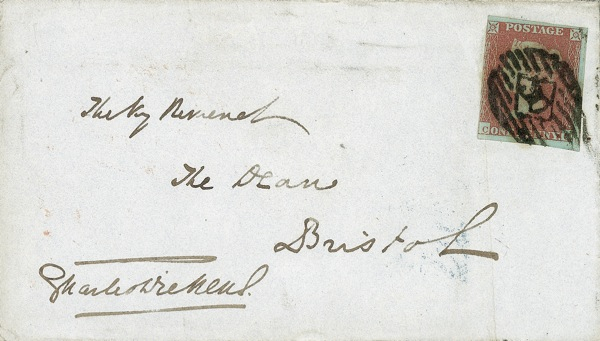 POSTAGE
ONE PENNY
The Vy Reverend
The Dean
Bristol
Charles Dickens.